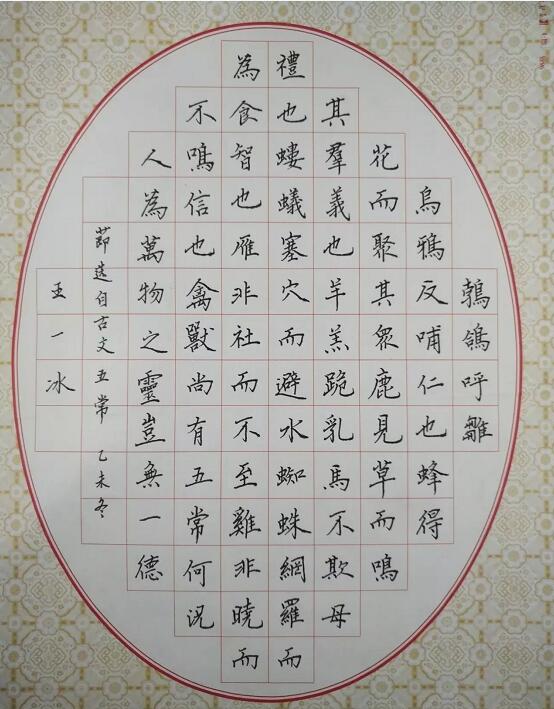 鵓鴿呼雛
烏鴉反哺仁也蜂得
花而聚其眾鹿見草而鳴
其羣義也羊羔跪乳馬不欺母
禮也螻蟻塞穴而避水蜘蛛網羅而
為食智也雁非社而不至雞非曉而
不鳴信也禽獸尚有五常何況
人為萬物之靈豈無一德
節選自古文五常 乙未冬
王一冰